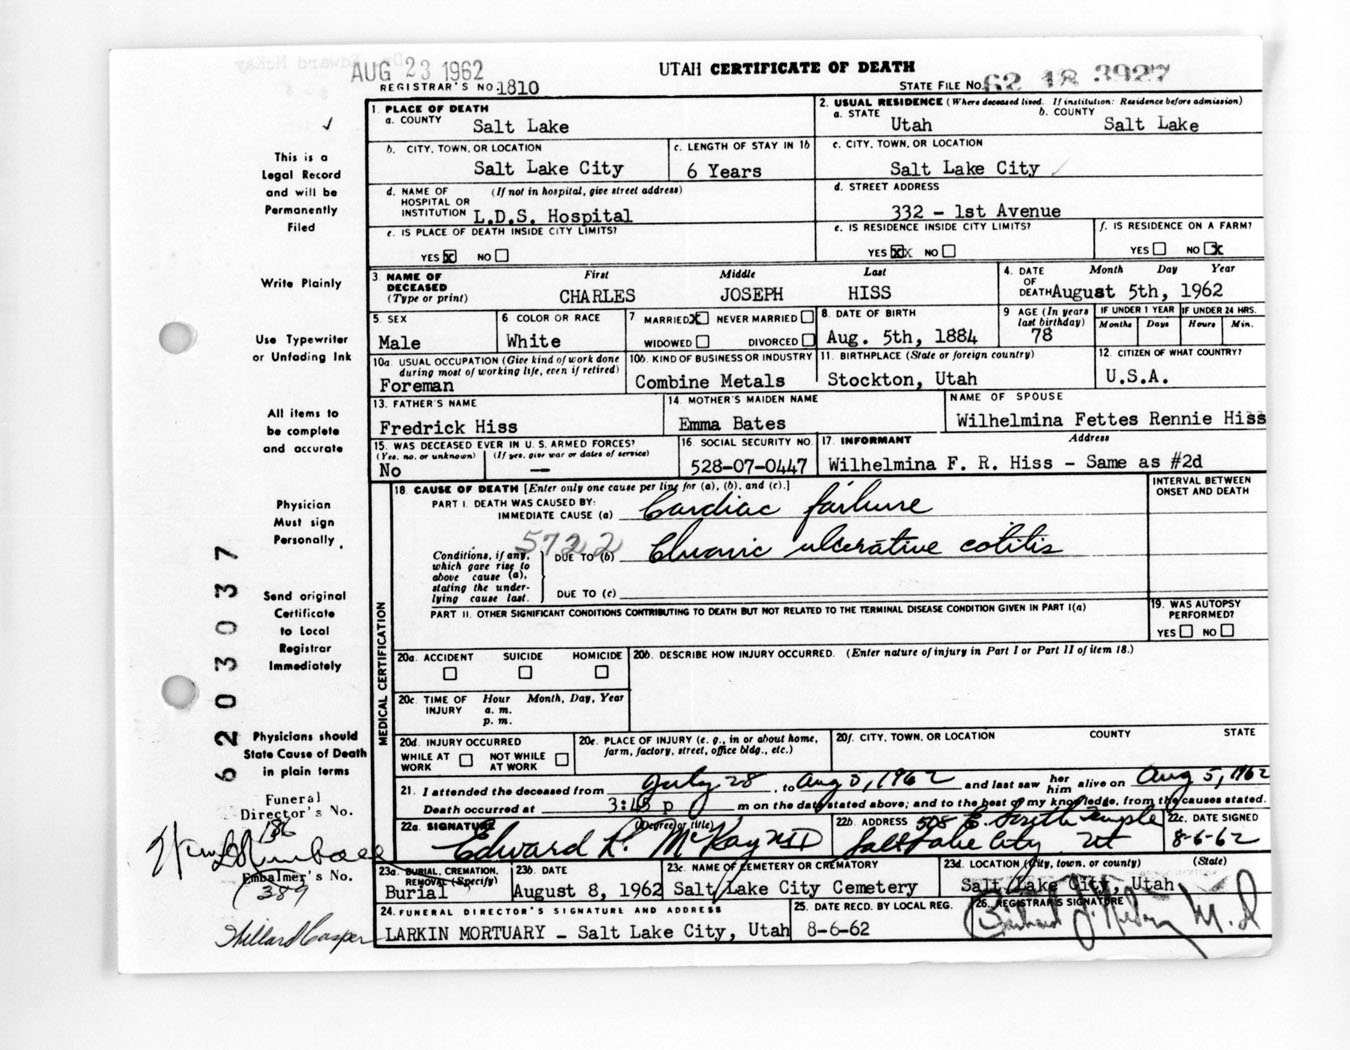 AUG 23 1962
UTAH CERTIFICATE OF DEATH
REGISTRAR'S NO. 1810
STATE FILE NO. 62 18 3927
This is a
Legal Record
and will be
Permanently
Filed
Write Plainly
Use Typewriter
or Unfading Ink
All items to
be complete
and accurate
Physician
Must sign
Personally.
Send original
Certificate
to Local
Registrar
Immediately
Physicians should
State Cause of Death
in plain terms
Funeral
Director's No.
186
Embalmer's No.
389
62030037
1. PLACE OF DEATH
a. COUNTY Salt Lake
2. USUAL RESIDENCE (Where deceased lived. If institution: Residence before admission)
a. STATE Utah b. COUNTY Salt Lake
b. CITY, TOWN, OR LOCATION Salt Lake City
c. LENGTH OF STAY IN 1b 6 Years
c. CITY, TOWN, OR LOCATION Salt Lake City
d. NAME OF HOSPITAL OR INSTITUTION (If not in hospital, give street address) L.D.S. Hospital
d. STREET ADDRESS 332 - 1st Avenue
e. IS PLACE OF DEATH INSIDE CITY LIMITS? YES X NO
e. IS RESIDENCE INSIDE CITY LIMITS? YES XX NO
f. IS RESIDENCE ON A FARM? YES NO X
3 NAME OF DECEASED (Type or print) First CHARLES Middle JOSEPH Last HISS
4. DATE OF DEATH Month Day Year August 5th, 1962
5. SEX Male
6 COLOR OR RACE White
7 MARRIED X NEVER MARRIED WIDOWED DIVORCED
8. DATE OF BIRTH Aug. 5th, 1884
9 AGE (In years last birthday) 78
IF UNDER 1 YEAR Months Days
IF UNDER 24 HRS. Hours Min.
10a. USUAL OCCUPATION (Give kind of work done during most of working life, even if retired) Foreman
10b. KIND OF BUSINESS OR INDUSTRY Combine Metals
11. BIRTHPLACE (State or foreign country) Stockton, Utah
12. CITIZEN OF WHAT COUNTRY? U.S.A.
13. FATHER'S NAME Fredrick Hiss
14. MOTHER'S MAIDEN NAME Emma Bates
NAME OF SPOUSE Wilhelmina Fettes Rennie Hiss
15. WAS DECEASED EVER IN U.S. ARMED FORCES? (Yes, no, or unknown) No (If yes, give war or dates of service) —
16. SOCIAL SECURITY NO. 528-07-0447
17. INFORMANT Address Wilhelmina F. R. Hiss - Same as #2d
18. CAUSE OF DEATH [Enter only one cause per line for (a), (b), and (c).]
INTERVAL BETWEEN ONSET AND DEATH
PART I. DEATH WAS CAUSED BY:
IMMEDIATE CAUSE (a) Cardiac failure
5722
Conditions, if any, which gave rise to above cause (a), stating the underlying cause last.
DUE TO (b) Chronic ulcerative colitis
DUE TO (c)
PART II. OTHER SIGNIFICANT CONDITIONS CONTRIBUTING TO DEATH BUT NOT RELATED TO THE TERMINAL DISEASE CONDITION GIVEN IN PART I(a)
19. WAS AUTOPSY PERFORMED? YES NO
MEDICAL CERTIFICATION
20a. ACCIDENT SUICIDE HOMICIDE
20b. DESCRIBE HOW INJURY OCCURRED. (Enter nature of injury in Part I or Part II of item 18.)
20c. TIME OF INJURY Hour a. m. p. m. Month, Day, Year
20d. INJURY OCCURRED WHILE AT WORK NOT WHILE AT WORK
20e. PLACE OF INJURY (e. g., in or about home, farm, factory, street, office bldg., etc.)
20f. CITY, TOWN, OR LOCATION COUNTY STATE
21. I attended the deceased from July 28, to Aug 5, 1962 and last saw her him alive on Aug 5, 1962
Death occurred at 3:45 p m on the date stated above; and to the best of my knowledge, from the causes stated.
22a. SIGNATURE (Degree or title) Edward R. McKay MD
22b. ADDRESS 508 E. South Temple Salt Lake City Ut
22c. DATE SIGNED 8-6-62
23a. BURIAL, CREMATION, REMOVAL (Specify) Burial
23b. DATE August 8, 1962
23c. NAME OF CEMETERY OR CREMATORY Salt Lake City Cemetery
23d. LOCATION (City, town, or county) (State) Salt Lake City, Utah
24. FUNERAL DIRECTOR'S SIGNATURE AND ADDRESS
LARKIN MORTUARY - Salt Lake City, Utah
25. DATE RECD. BY LOCAL REG. 8-6-62
26. REGISTRAR'S SIGNATURE